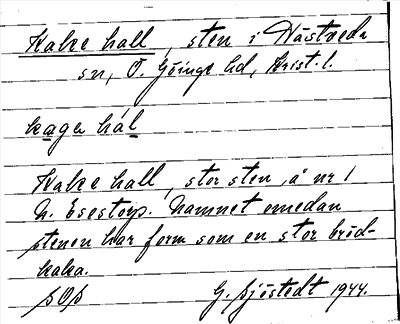 Kake hall, sten i Hästveda
sn, Ö. Göinge hd, Krist. l.
kaga hál
Kake hall, stor sten, å nr 1
N. Esestorp. Namnet emedan
stenen har form som en stor bröd-
kaka.
G. Sjöstedt 1944.